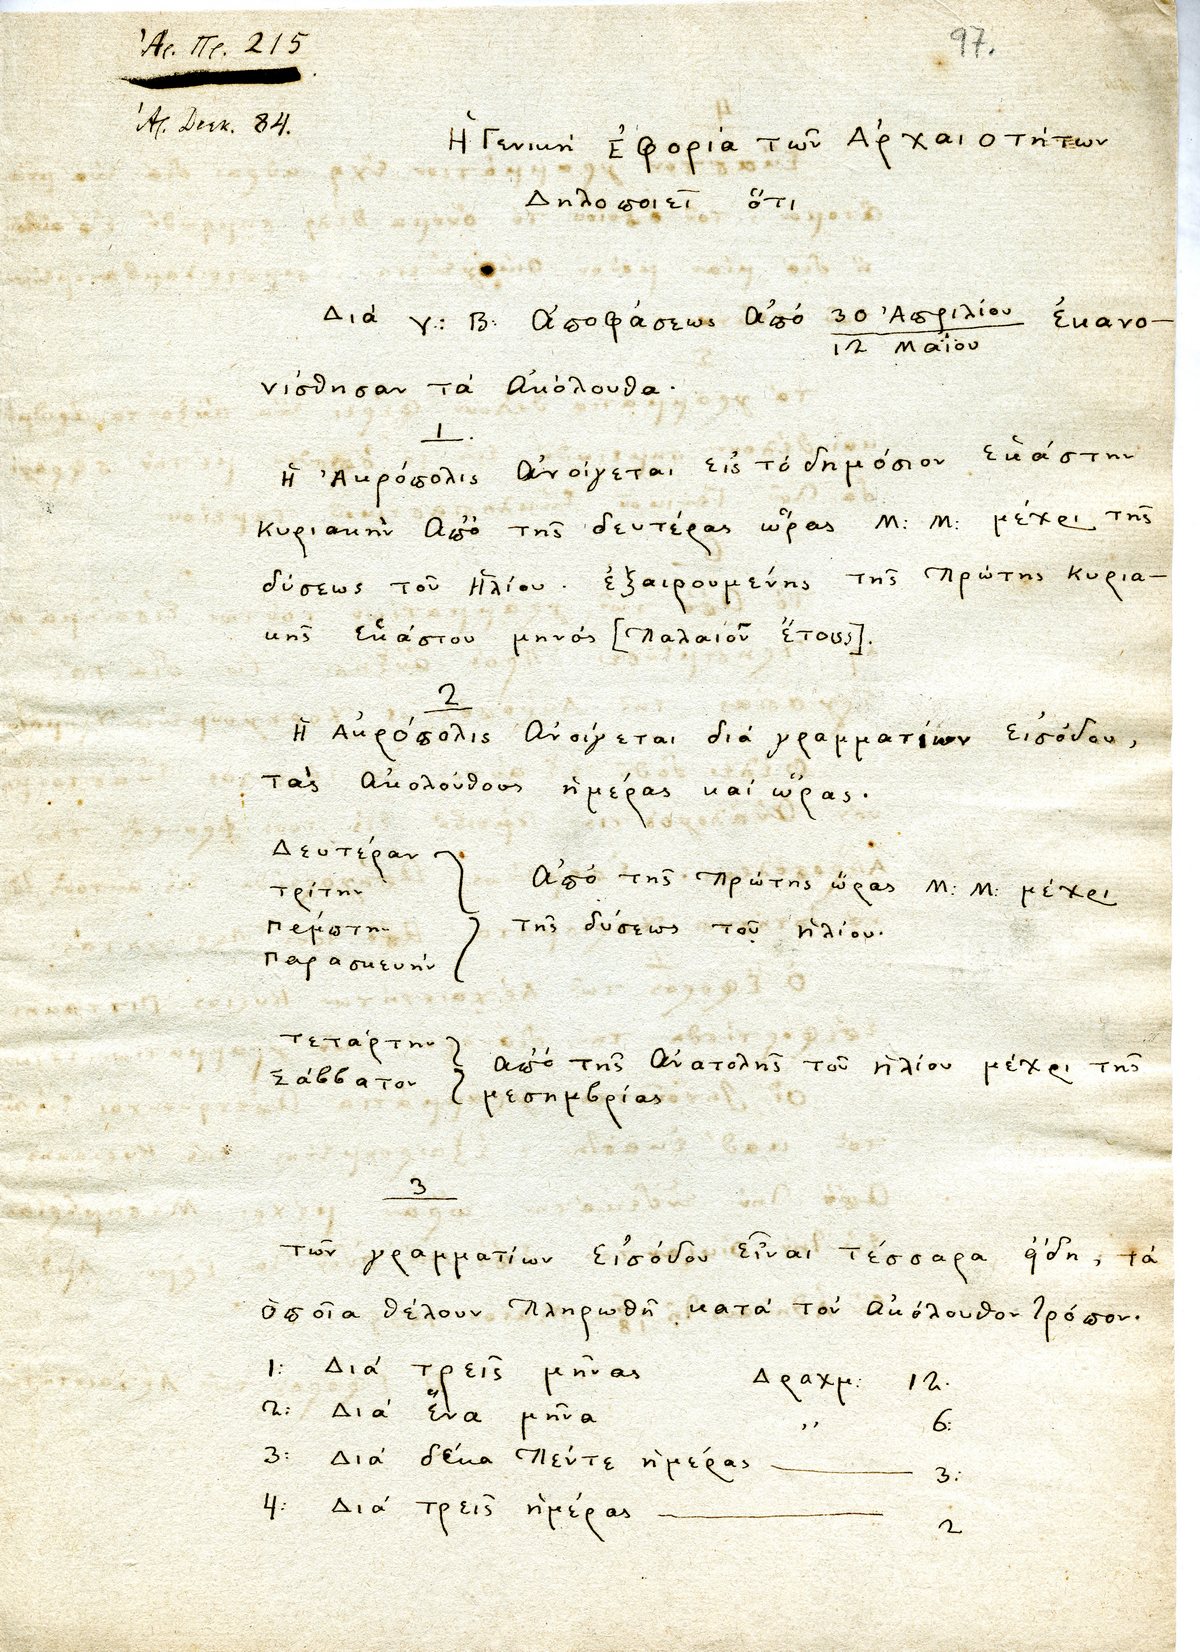 Ἀρ. Πρ. 215
97.
Ἀρ. Διεκ. 84.
Ἡ Γενική Ἐφορία τῶν Ἀρχαιοτήτων
Δηλοποιεῖ ὅτι
Διά γ: Β: ἀποφάσεως ἀπό 30 Ἀπριλίου ἐκανο-
12 Μαΐου
νίσθησαν τά ἀκόλουθα.
1.
Ἡ Ἀκρόπολις ἀνοίγεται εἰς τό δημόσιον ἑκάστην
Κυριακήν ἀπό τῆς δευτέρας ὥρας Μ: Μ: μέχρι τῆς
δύσεως τοῦ Ἡλίου. ἐξαιρουμένης τῆς Πρώτης Κυρια-
κῆς ἑκάστου μηνός [Παλαιοῦ ἔτους].
2
Ἡ Ἀκρόπολις ἀνοίγεται διά γραμματίων εἰσόδου,
τάς ἀκολούθους ἡμέρας καί ὥρας.
Δευτέραν
τρίτην
Πέμπτην
Παρασκευήν
ἀπό τῆς Πρώτης ὥρας Μ: Μ: μέχρι
τῆς δύσεως τοῦ ἡλίου.
τετάρτην
Σάββατον
ἀπό τῆς ἀνατολῆς τοῦ ἡλίου μέχρι τῆς
μεσημβρίας
3
τῶν γραμματίων εἰσόδου εἶναι τέσσαρα ἤδη, τά
ὁποῖα θέλουν Πληρωθῆ κατά τόν ἀκόλουθον τρόπον.
1: Διά τρεῖς μῆνας Δραχμ: 12.
2: Διά ἕνα μῆνα ,, 6:
3: Διά δέκα Πέντε ἡμέρας — 3:
4: Διά τρεῖς ἡμέρας — 2